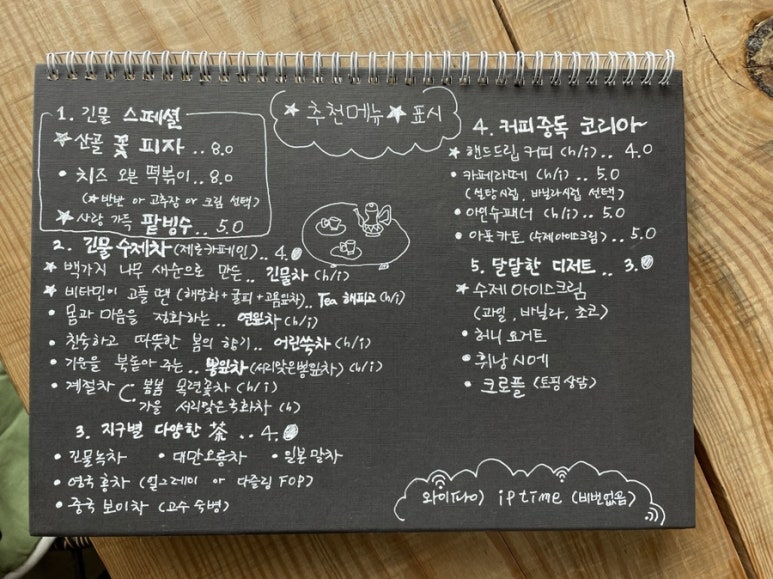 ★ 추천메뉴 ★ 표시
1. 긴물 스페셜
★ 산골 꽃 피자 .. 8.0
• 치즈 오븐 떡볶이 .. 8.0
(★반반 or 고추장 or 크림 선택)
★ 사랑 가득 팥빙수 .. 5.0
2. 긴물 수제차 (제로카페인) .. 4.0
★ 백가지 나무 새순으로 만든.. 긴물차 (h/i)
★ 비타민이 고플 땐 (해당화+귤피+고욤잎차).. Tea 해피고 (h/i)
• 몸과 마음을 정화하는 .. 연잎차 (h/i)
• 친숙하고 따뜻한 봄의 향기.. 어린쑥차 (h/i)
• 기운을 북돋아 주는 .. 뽕잎차 (서리맞은뽕잎차) (h/i)
• 계절차 봄봄 목련꽃차 (h/i)
가을 서리맞은국화차 (h)
3. 지구별 다양한 茶 .. 4.0
• 긴물녹차 • 대만우롱차 • 일본 말차
• 영국 홍차 (얼그레이 or 다즐링 FOP)
• 중국 보이차 (고수 숙병)
4. 커피 중독 코리아
★ 핸드드립 커피 (h/i) .. 4.0
• 카페라떼 (h/i) .. 5.0
(설탕시럽, 바닐라시럽 선택)
• 아인슈패너 (h/i) .. 5.0
• 아포카토 (수제아이스크림) .. 5.0
5. 달달한 디저트 .. 3.0
★ 수제 아이스크림
(과일, 바닐라, 초코)
• 허니 요거트
• 휘낭시에
• 크로플 (토핑상담)
와이파이 iptime (비번없음)